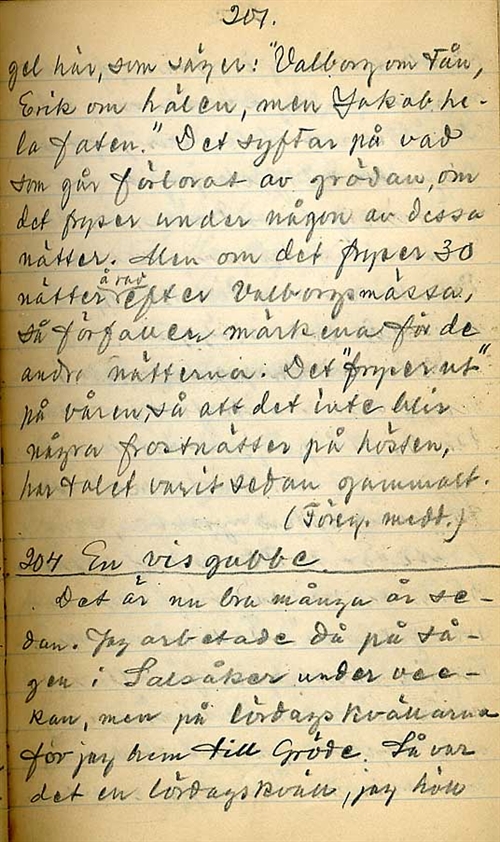 207.
gel här, som säger: "Valborg om tån,
Erik om hälen, men Jakob he-
la foten." Det syftar på vad
som går förlorat av grödan, om
det fryser under någon av dessa
nätter. Men om det fryser 30
nätter å rad efter Valborgsmässa,
så förfaller märkena för de
andra nätterna. Det "fryser ut"
på våren, så att det inte blir
några frostnätter på hösten,
har talet varit sedan gammalt.
(Föreg. medd.)
204 En vis gubbe.
Det är nu bra många år se-
dan. Jag arbetade då på så-
gen i Salsåker under vec-
kan, men på lördagskvällarna
för jag hem till Gröde. Så var
det en lördagskväll, jag höll